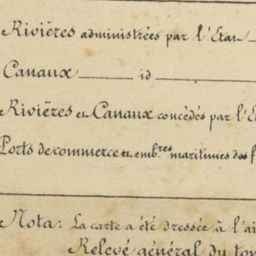 Rivières administrées par l'Etat
Canaux id
Rivières et Canaux concédés par l'E
Ports de commerce et emb.res maritimes des f
Nota: La carte a été dressée à l'ai
Relevé général du ton